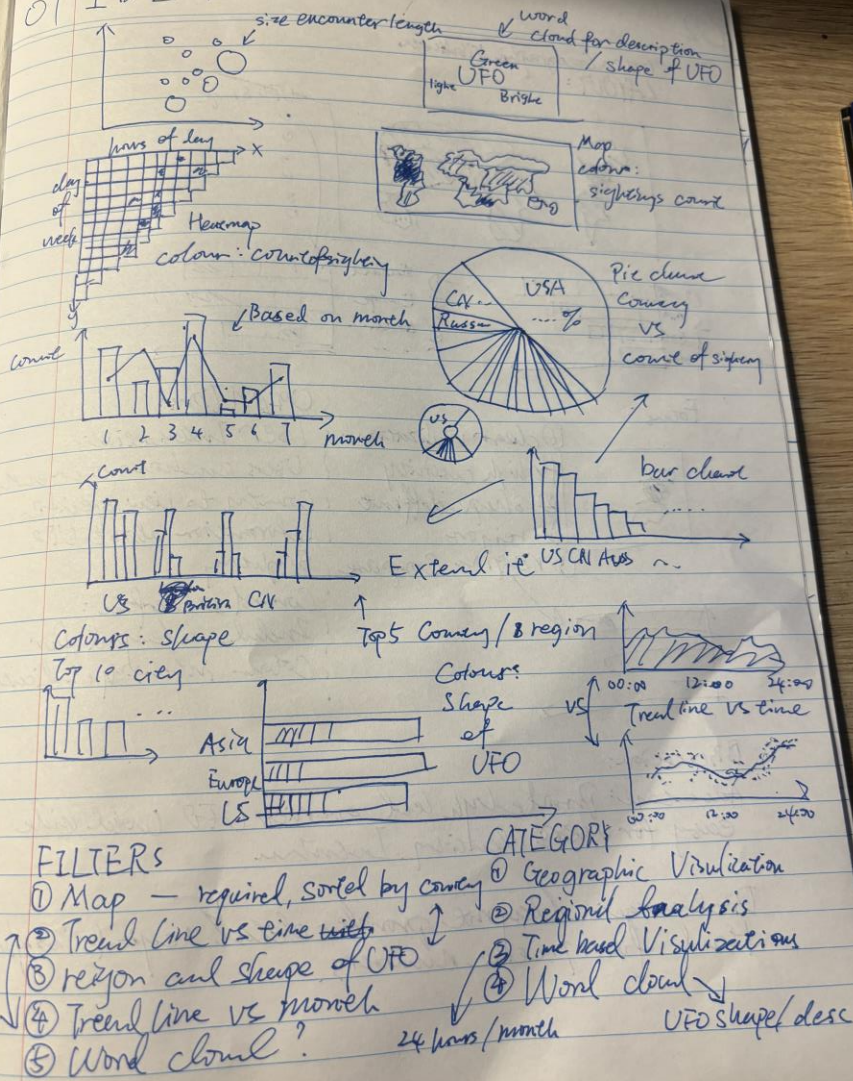 size encounter length
word
cloud for description
/ shape of UFO
Green
UFO
light
Bright
hours of day
X
day
of
week
y
Heatmap
colour: count of sighting
Map
colour:
sightings count
Pie chart
Country
VS
count of sighting
USA
CN..
Russia
.... %
Based on month
Count
1 2 3 4 5 6 7
month
US
bar chart
.....
US CN Aus ~
Extend it
Count
US
CN
Colours: shape
Top 5 Country / 8 region
Top 10 city
...
Colours:
Shape
of
UFO
Asia
Europe
US
00:00 12:00 24:00
Trend line vs time
VS
00:00 12:00 24:00
FILTERS
① Map — required, sorted by country
② Trend line vs time
③ reigon and shape of UFO
④ Trend line vs month
⑤ Word cloud?
CATEGORY
① Geographic Visulization
② Regional Analysis
③ Time based Visulizations
④ Word cloud
24 hours/month
UFO shape/desc